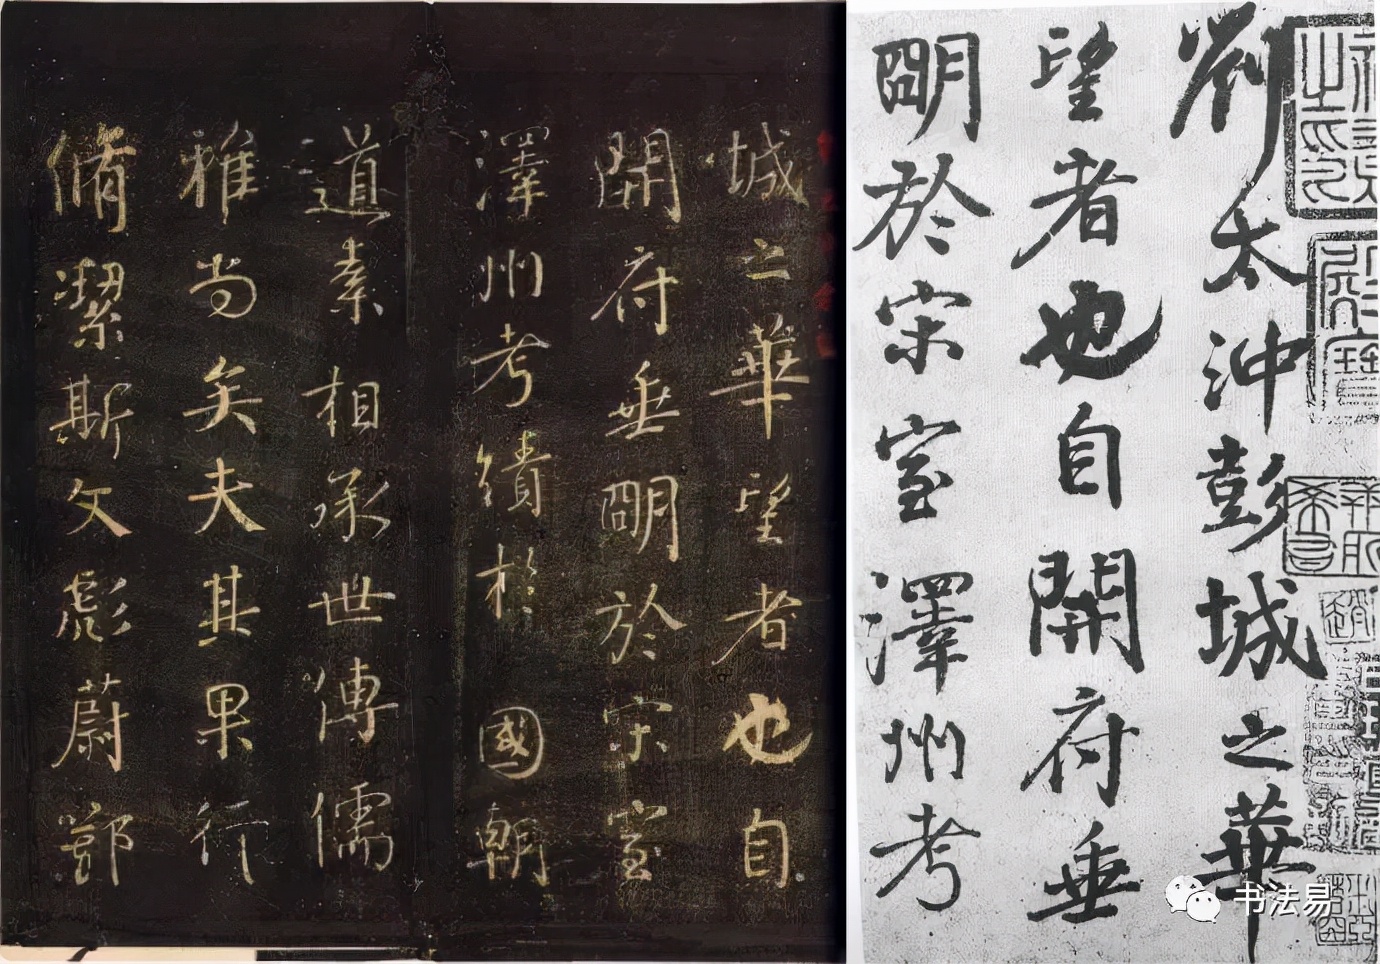 劉太沖彭城之華
望者也自開府垂
明於宋室澤州考
城之華望者也自
開府垂明於宋室
澤州考績於國朝
道素相承世傳儒
雅尚矣夫其果行
脩潔斯文彪蔚鄂
书法易